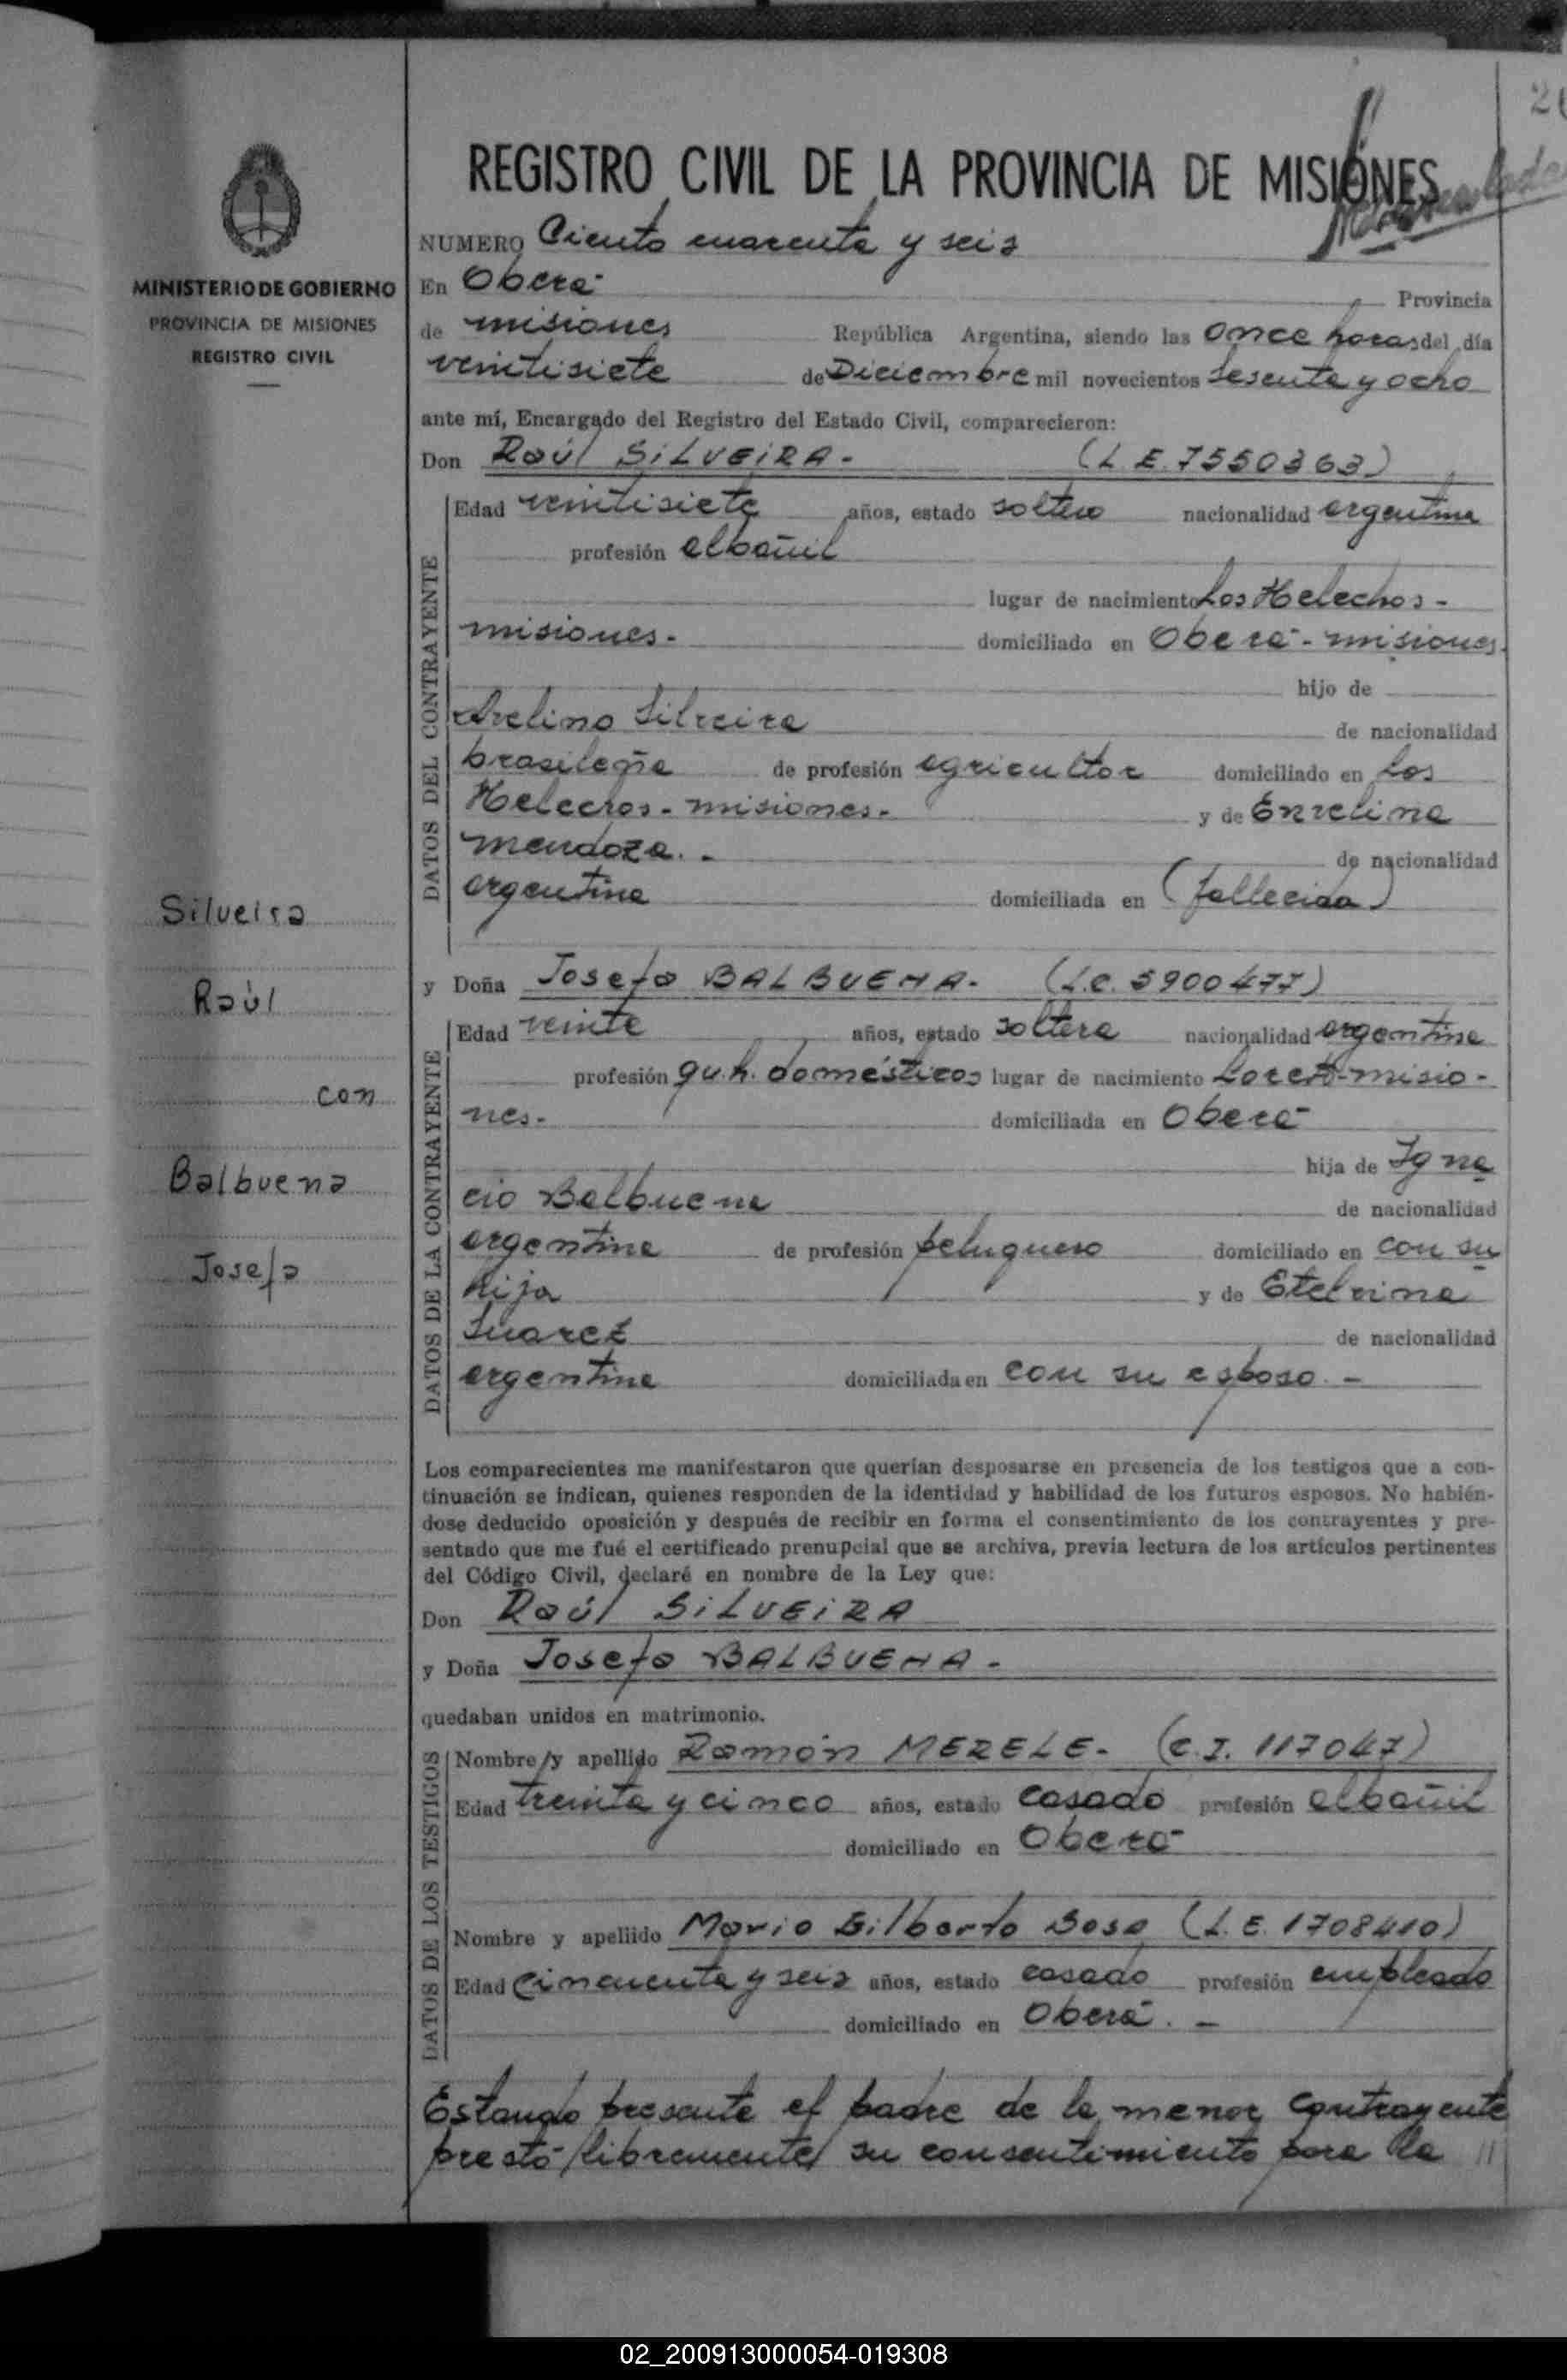 REGISTRO CIVIL DE LA PROVINCIA DE MISIONES
NUMERO Ciento cuarenta y seis
MINISTERIO DE GOBIERNO
PROVINCIA DE MISIONES
REGISTRO CIVIL
En Oberá- Provincia
de misiones República Argentina, siendo las once horas del día
veintisiete de Diciembre mil novecientos sesenta y ocho
ante mí, Encargado del Registro del Estado Civil, comparecieron:
Don Raúl SILVEIRA- (L.E. 7550363)
DATOS DEL CONTRAYENTE
Edad veintisiete años, estado soltero nacionalidad argentina
profesión albañil
lugar de nacimiento Los Helechos-
misiones.- domiciliado en Oberá- misiones.
hijo de
Avelino Silveira de nacionalidad
brasileña de profesión agricultor domiciliado en Los
Helechos- misiones.- y de
mendoza.- de nacionalidad
argentina domiciliada en (fallecida)
Silveira
Raúl
con
Balbuena
Josefa
y Doña Josefa BALBUENA- (L.C. 5900477)
DATOS DE LA CONTRAYENTE
Edad veinte años, estado soltera nacionalidad argentina
profesión qu.h. domésticos lugar de nacimiento Loreto-misio-
nes.- domiciliada en Oberá-
hija de Igna
cio Balbuena de nacionalidad
argentina de profesión peluquero domiciliado en con su
hija y de Etelvina
Suarez de nacionalidad
argentina domiciliada en con su esposo.-
Los comparecientes me manifestaron que querían desposarse en presencia de los testigos que a con-
tinuación se indican, quienes responden de la identidad y habilidad de los futuros esposos. No habién-
dose deducido oposición y después de recibir en forma el consentimiento de los contrayentes y pre-
sentado que me fué el certificado prenupcial que se archiva, previa lectura de los artículos pertinentes
del Código Civil, declaré en nombre de la Ley que:
Don Raúl SILVEIRA
y Doña Josefa BALBUENA-
quedaban unidos en matrimonio.
DATOS DE LOS TESTIGOS
Nombre y apellido Ramón MERELE- (C.I. 117047)
Edad treinta y cinco años, estado casado profesión albañil
domiciliado en Oberá-
Nombre y apellido Mario Gilberto Sosa (L.E. 1708410)
Edad cincuenta y seis años, estado casado profesión empleado
domiciliado en Oberá.-
Estando presente el padre de la menor contrayente
prestó libremente su consentimiento para la //
02_200913000054-019308